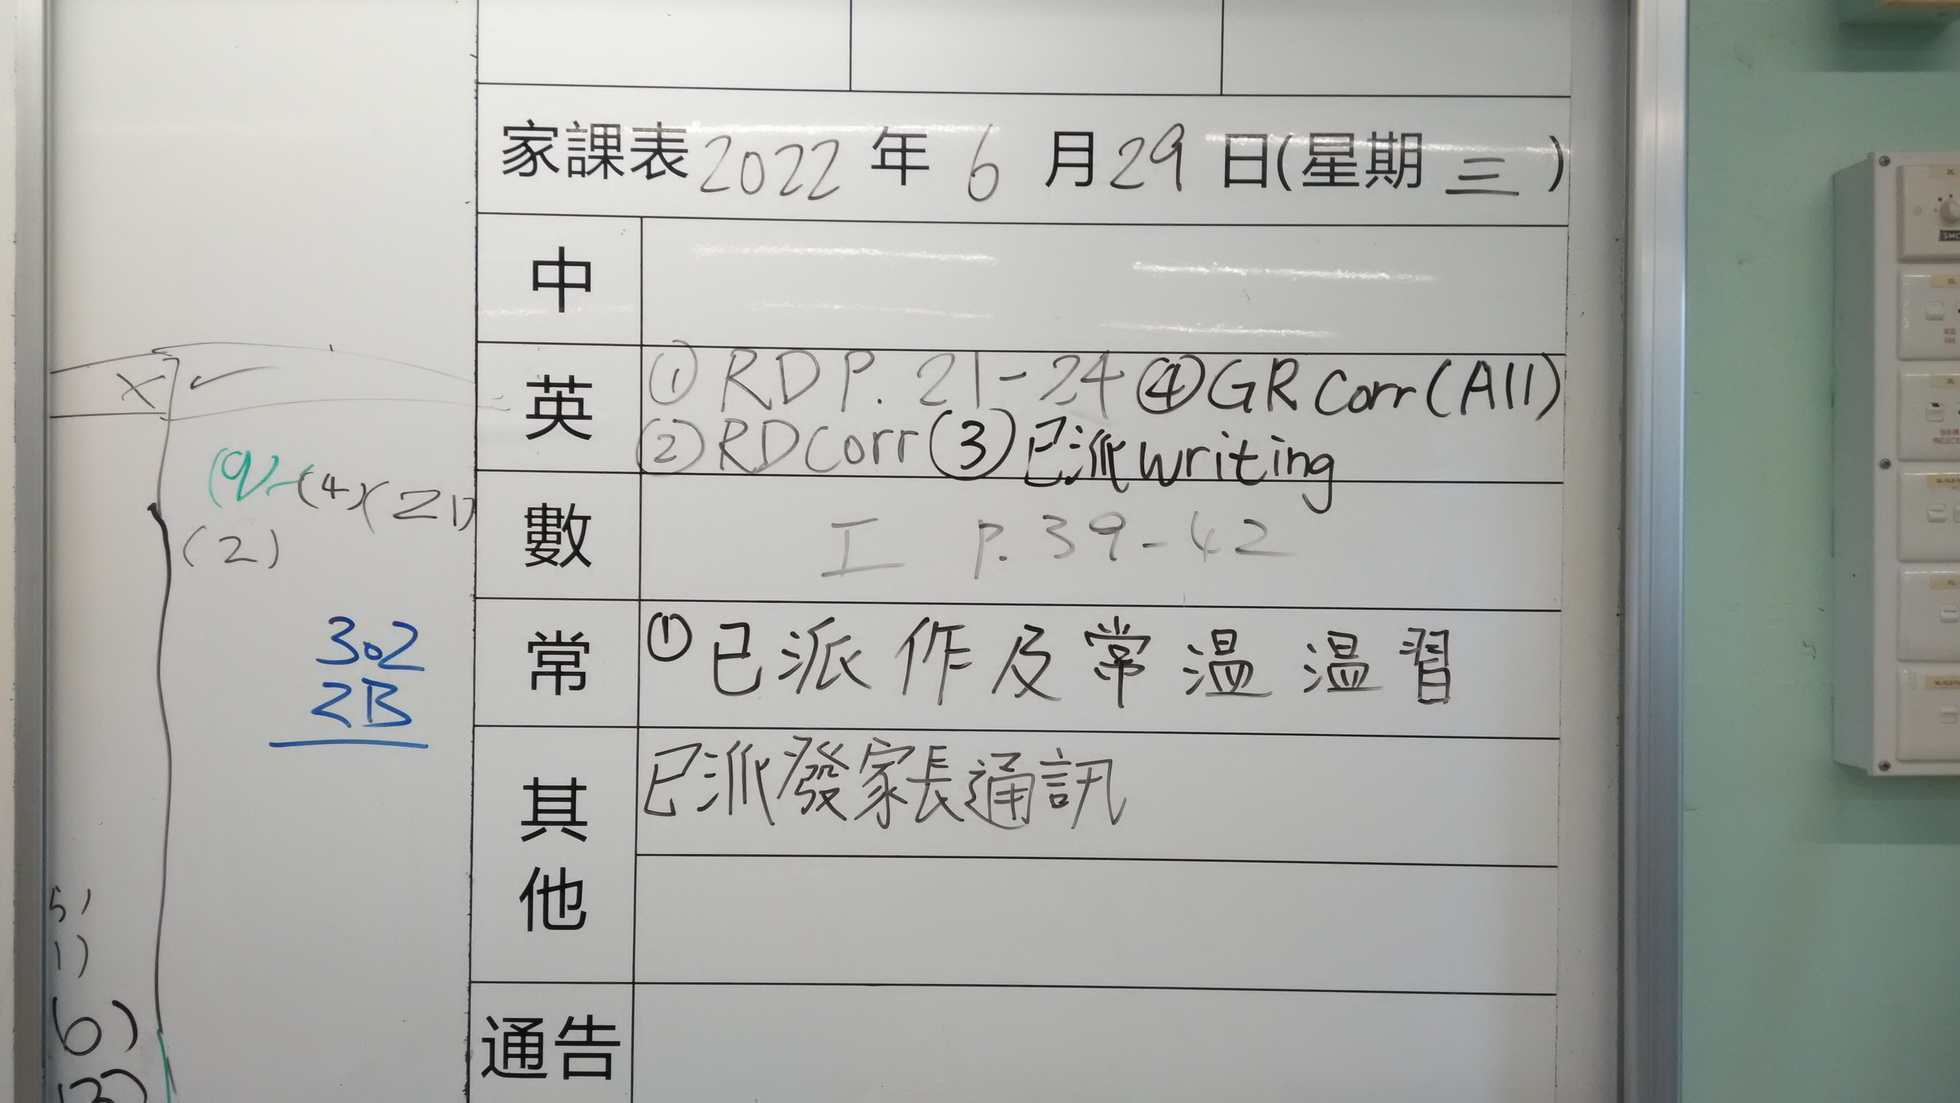 家課表 2022 年 6 月 29 日(星期 三 )
中
英
① RD P. 21-24 ④ GR Corr (All)
② RD Corr ③ 已派 writing
數
工 P. 39-42
常
① 已派作及常溫溫習
其他
已派發家長通訊
通告
X ✓
(9) (4) (21)
(2)
302
2B
5)
1)
6)